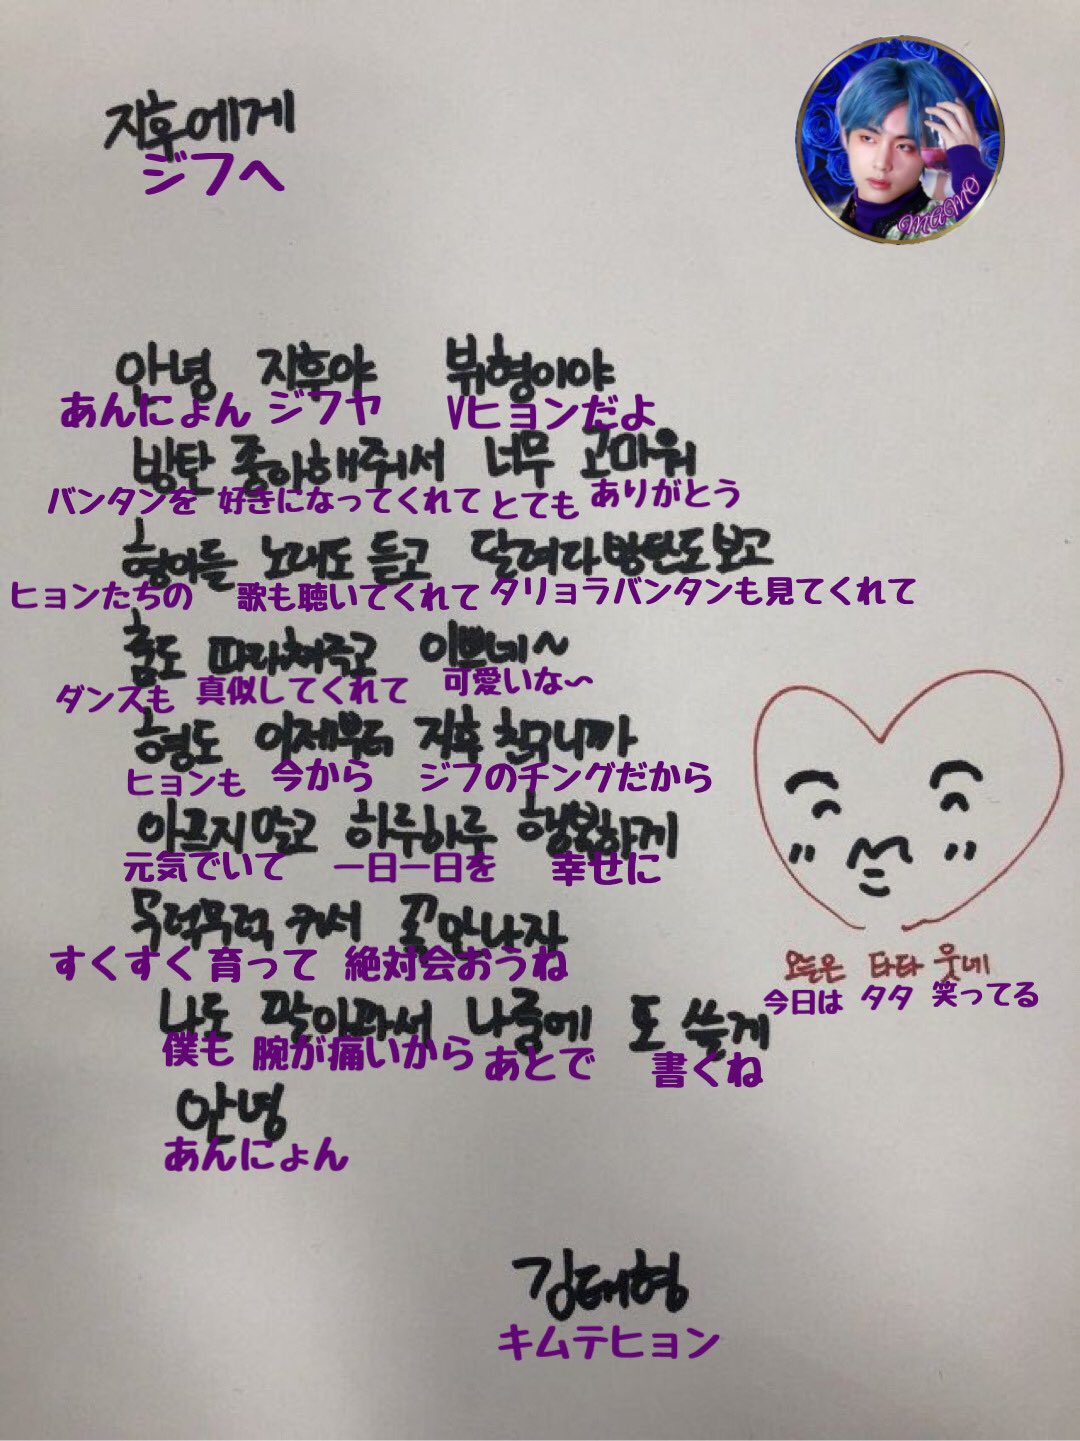 지후에게
ジフへ
MAMO
안녕 지후야 뷔형이야
あんにょん ジフヤ Vヒョンだよ
방탄 좋아해줘서 너무 고마워
バンタンを 好きになってくれて とても ありがとう
형아들 노래도 듣고 달려라 방탄도 보고
ヒョンたちの 歌も聴いてくれて タリョラバンタンも見てくれて
춤도 따라춰주고 이쁘네~
ダンスも 真似してくれて 可愛いな〜
형도 이제부터 지후 친구니까
ヒョンも 今から ジフのチングだから
아프지말고 하루하루 행복하게
元気でいて 一日一日を 幸せに
무럭무럭 커서 꼭 만나자
すくすく 育って 絶対会おうね
오늘은 타타 웃네
今日は タタ 笑ってる
나도 팔아파서 나중에 또 쓸게
僕も 腕が痛いから あとで 書くね
안녕
あんにょん
김태형
キムテヒョン